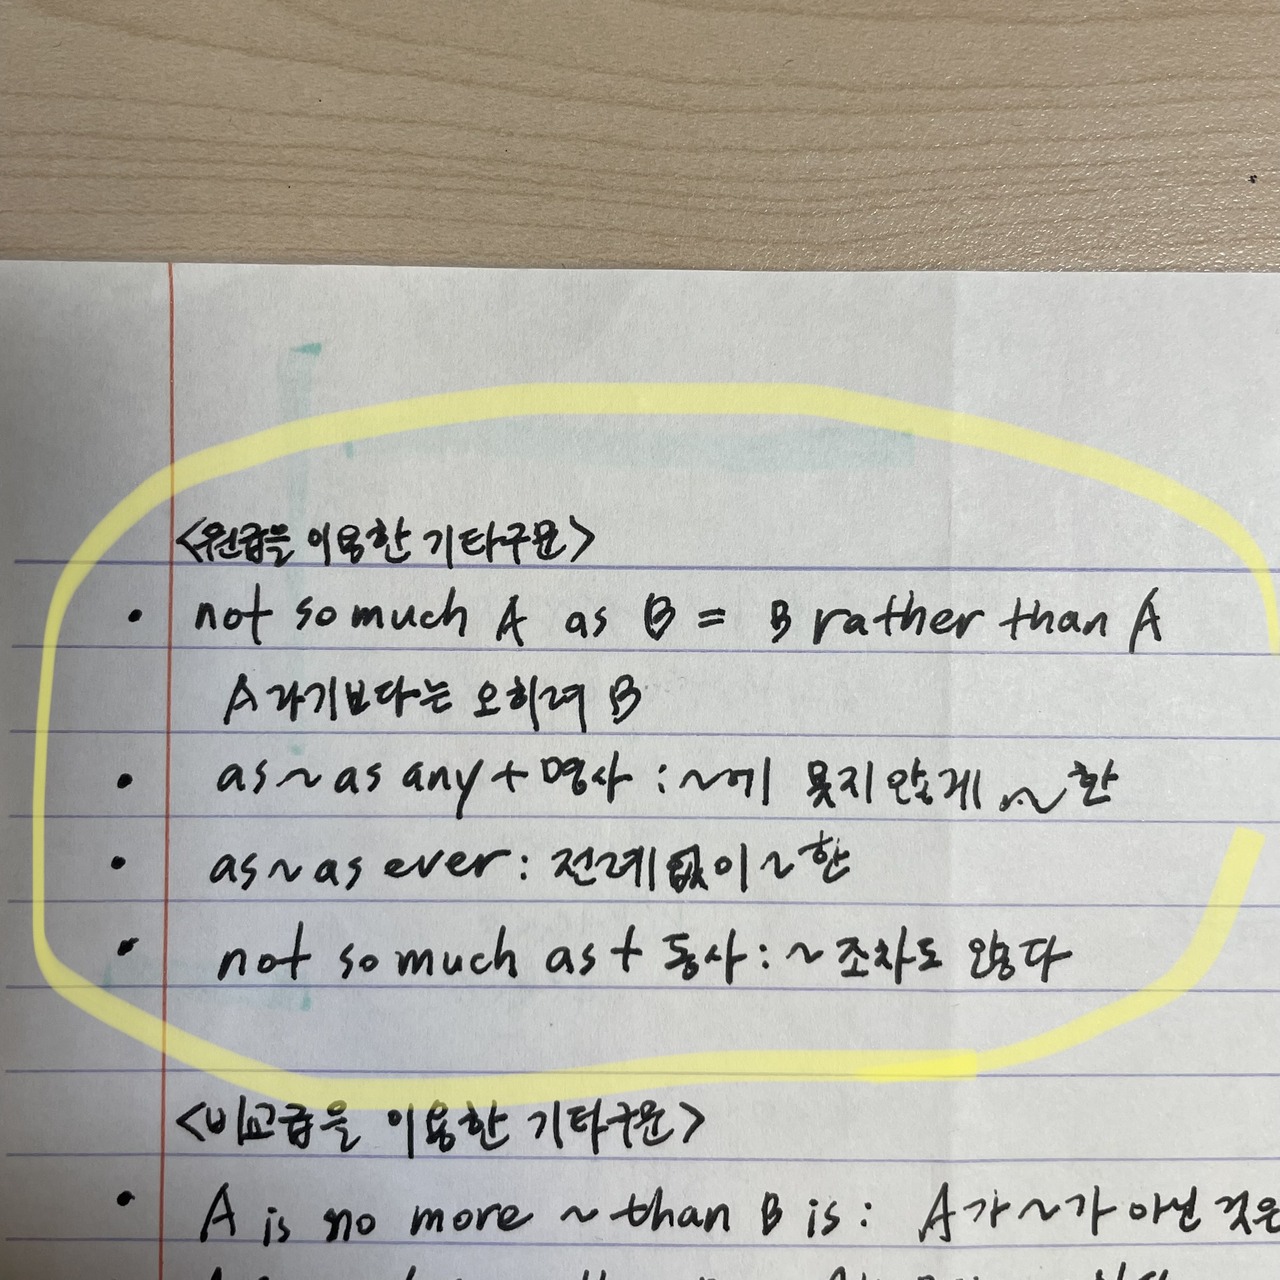 <원급을 이용한 기타구문>
• not so much A as B = B rather than A
A라기보다는 오히려 B
• as ~ as any + 명사 : ~에 못지 않게 ~한
• as ~ as ever : 전례없이 ~한
• not so much as + 동사 : ~조차도 않다
<비교급을 이용한 기타구문>
• A is no more ~ than B is : A가 ~가 아닌 것은